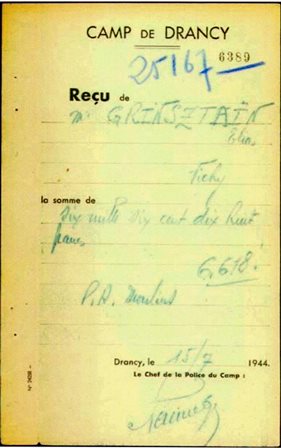 CAMP DE DRANCY
6389
25167
Reçu de
Mr GRINSZTAÏN
Elias
Vichy
la somme de
six mille six cent dix huit
francs
6.618.
P.A. Moulins
Drancy, le 15/7 1944.
Le Chef de la Police du Camp :